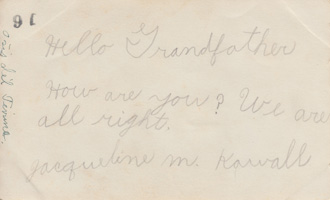 16
Hello Grandfather
How are you? We are
all right.
Jacqueline M. Kowall